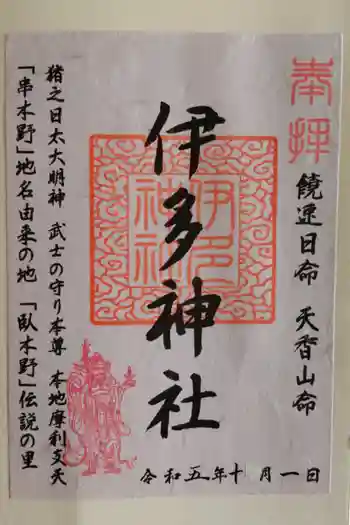 奉拝
饒速日命 天香山命
伊多神社
伊多神社
猪之日太大明神 武士の守り本尊 本地摩利支天
「串木野」地名由来の地 「臥木野」伝説の里
令和五年十月一日